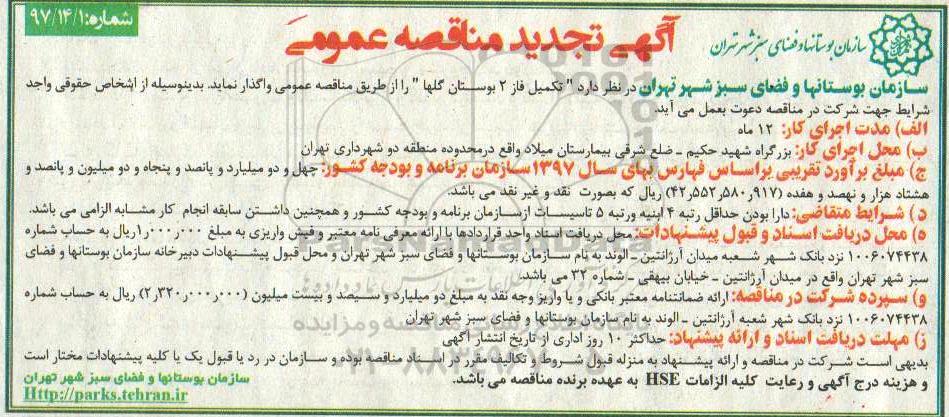 شماره:۹۷/۱۴/۱
آگهی تجدید مناقصه عمومی
سازمان بوستانها و فضای سبز شهر تهران
سازمان بوستانها و فضای سبز شهر تهران در نظر دارد " تکمیل فاز ۲ بوستان گلها " را از طریق مناقصه عمومی واگذار نماید. بدینوسیله از اشخاص حقوقی واجد
شرایط جهت شرکت در مناقصه دعوت بعمل می آید.
الف) مدت اجرای کار: ۱۲ ماه
ب) محل اجرای کار: بزرگراه شهید حکیم - ضلع شرقی بیمارستان میلاد واقع درمحدوده منطقه دو شهرداری تهران
ج) مبلغ برآورد تقریبی براساس فهارس بهای سال ۱۳۹۷سازمان برنامه و بودجه کشور: چهل و دو میلیارد و پانصد و پنجاه و دو میلیون و پانصد و
هشتاد هزار و نهصد و هفده (۴۲,۵۵۲,۵۸۰,۹۱۷) ریال که بصورت نقد و غیر نقد می باشد.
د) شرایط متقاضی: دارا بودن حداقل رتبه ۴ ابنیه ورتبه ۵ تاسیسات ازسازمان برنامه و بودجه کشور و همچنین داشتن سابقه انجام کار مشابه الزامی می باشد.
ه) محل دریافت اسناد و قبول پیشنهادات: محل دریافت اسناد واحد قراردادها با ارائه معرفی نامه معتبر و فیش واریزی به مبلغ ۱٫۰۰۰٫۰۰۰ ریال به حساب شماره
۱۰۰۶۰۷۴۴۳۸ نزد بانک شهر شعبه میدان آرژانتین - الوند به نام سازمان بوستانها و فضای سبز شهر تهران و محل قبول پیشنهادات دبیرخانه سازمان بوستانها و فضای
سبز شهر تهران واقع در میدان آرژانتین - خیابان بیهقی - شماره ۳۲ می باشد.
و) سپرده شرکت در مناقصه: ارائه ضمانتنامه معتبر بانکی و یا واریز وجه نقد به مبلغ دو میلیارد و سیصد و بیست میلیون (۲٫۳۲۰٫۰۰۰٫۰۰۰) ریال به حساب شماره
۱۰۰۶۰۷۴۴۳۸ نزد بانک شهر شعبه آرژانتین - الوند به نام سازمان بوستانها و فضای سبز شهر تهران
ز) مهلت دریافت اسناد و ارائه پیشنهاد: حداکثر ۱۰ روز اداری از تاریخ انتشار آگهی
بدیهی است شرکت در مناقصه و ارائه پیشنهاد به منزله قبول شروط و تکالیف مقرر در اسناد مناقصه بوده و سازمان در رد یا قبول یک یا کلیه پیشنهادات مختار است
و هزینه درج آگهی و رعایت کلیه الزامات HSE به عهده برنده مناقصه می باشد.
سازمان بوستانها و فضای سبز شهر تهران
Http://parks.tehran.ir